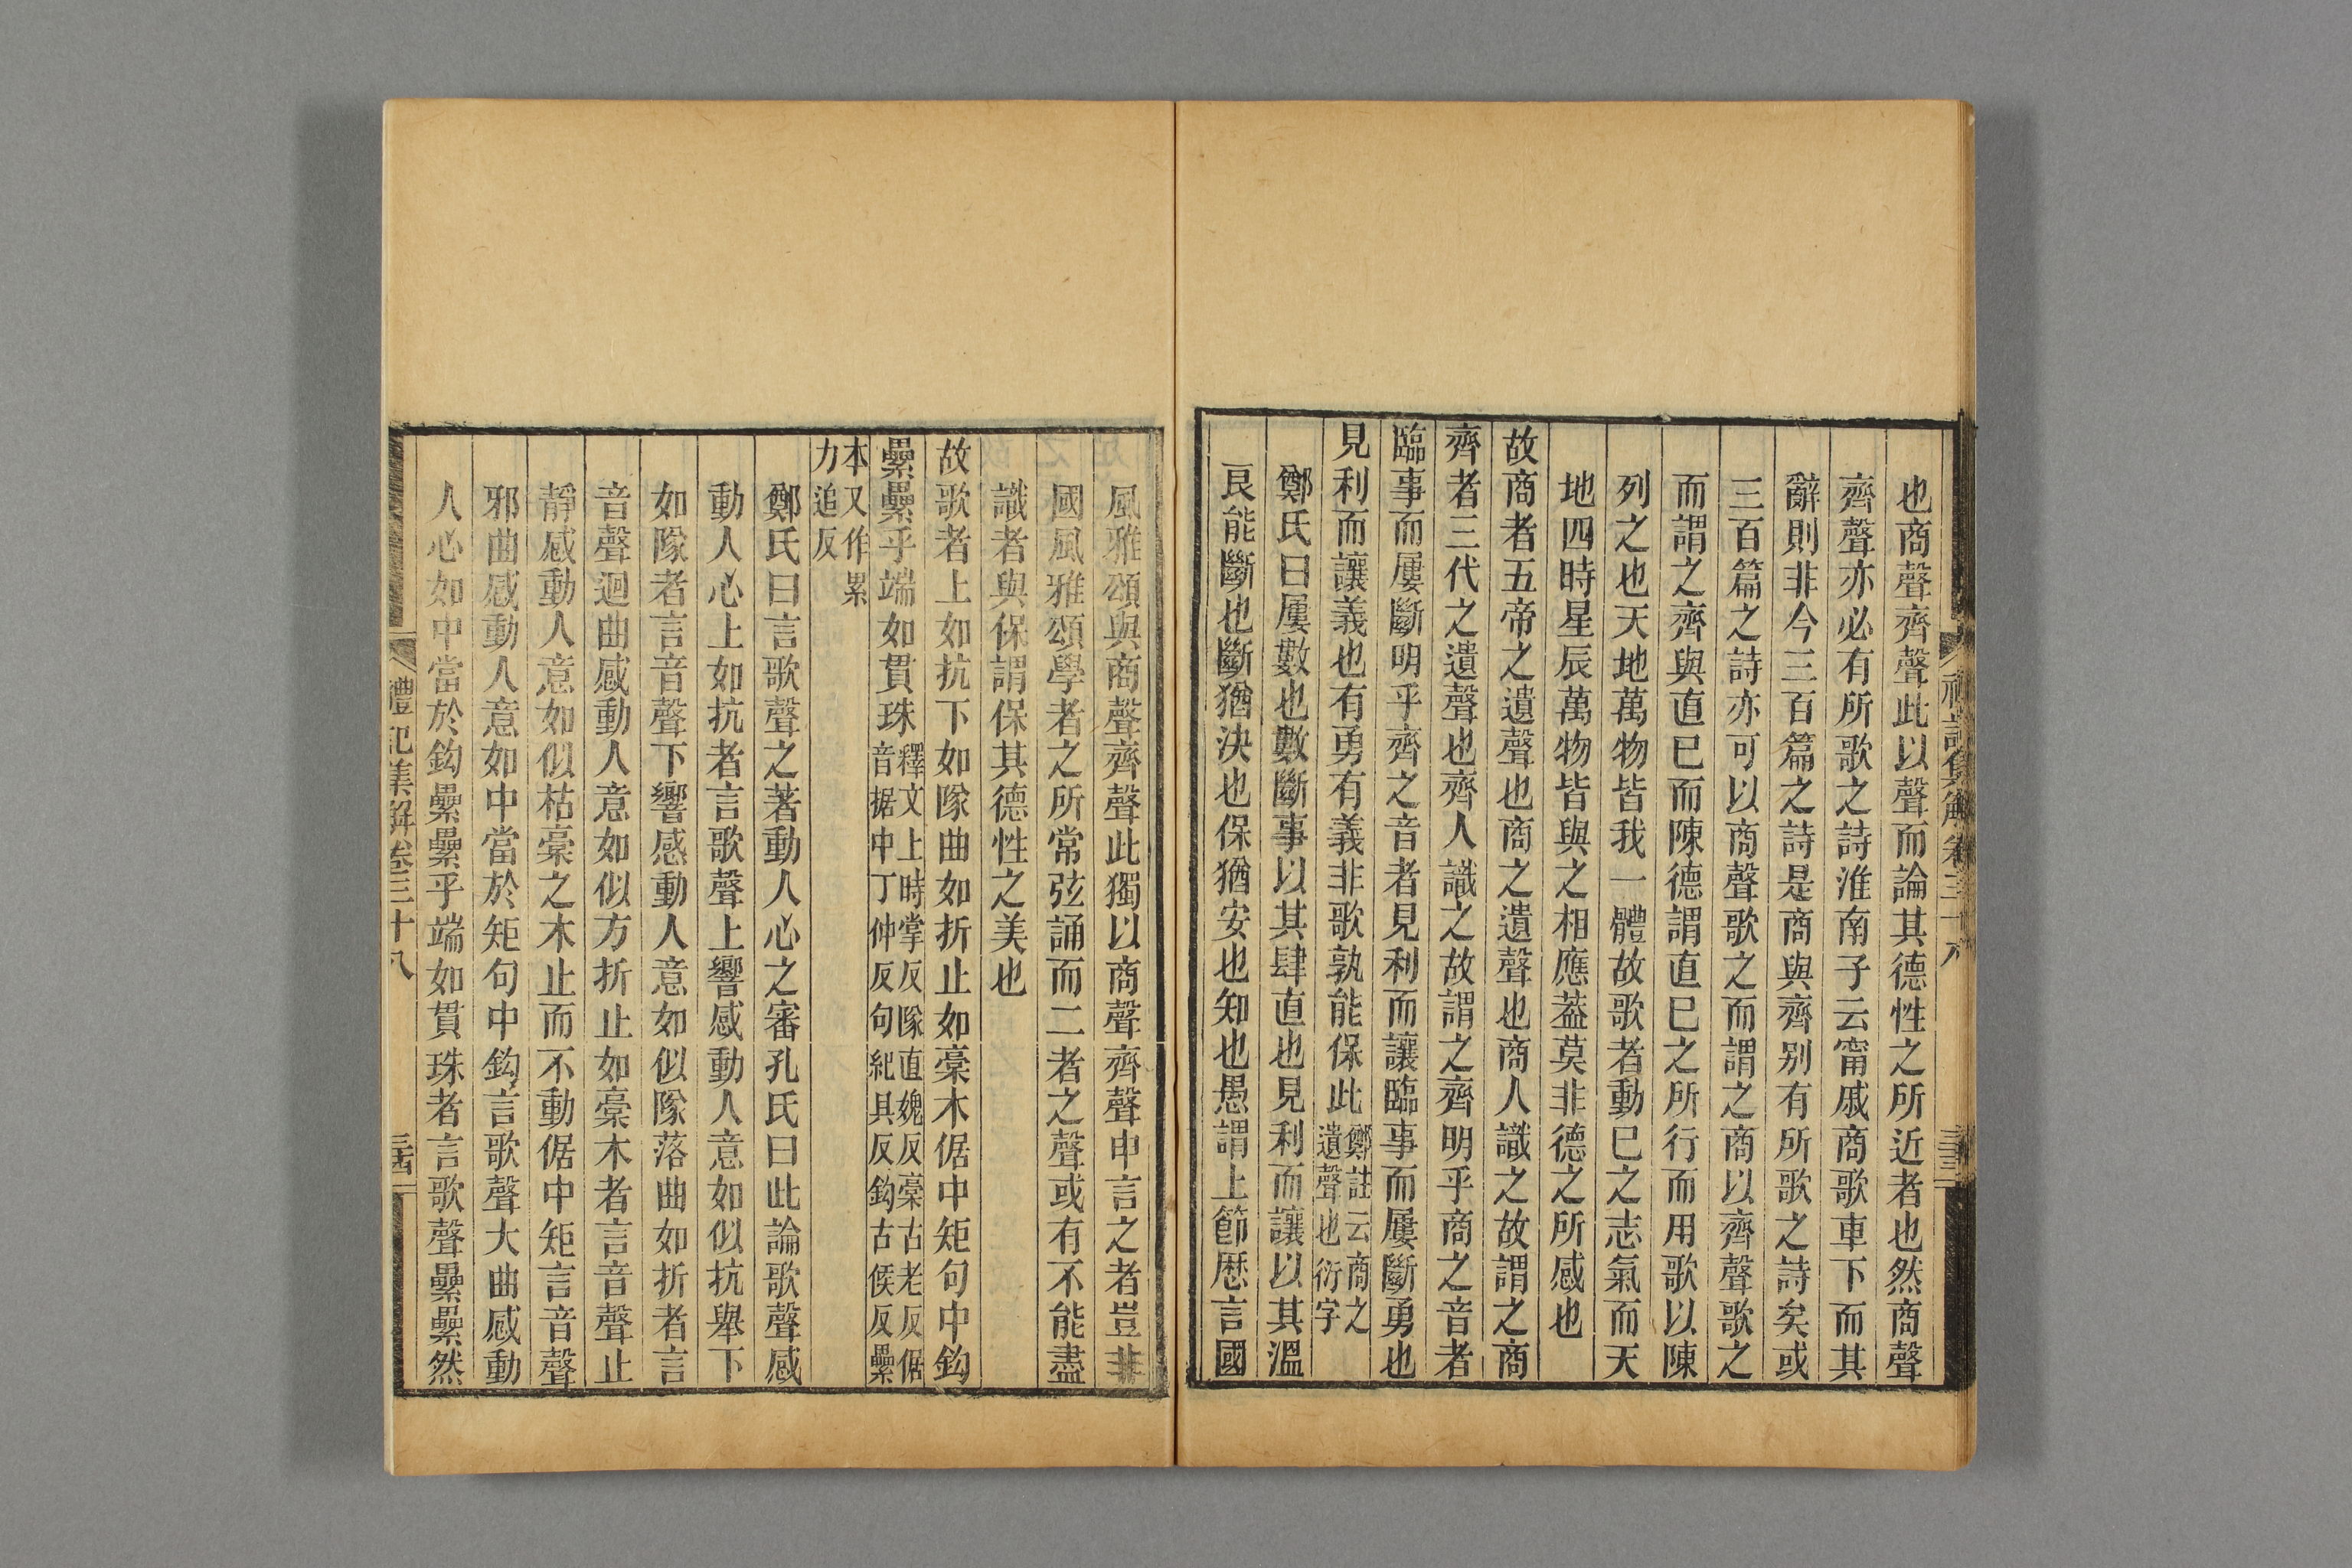 禮記集解卷三十八
三三
也商聲齊聲此以聲而論其德性之所近者也然商聲
齊聲亦必有所歌之詩淮南子云甯戚商歌車下而其
辭則非今三百篇之詩是商與齊别有所歌之詩矣或
三百篇之詩亦可以商聲歌之而謂之商以齊聲歌之
而謂之齊與直已而陳德謂直巳之所行而用歌以陳
列之也天地萬物皆我一體故歌者動巳之志氣而天
地四時星辰萬物皆與之相應葢莫非德之所感也
故商者五帝之遺聲也商之遺聲也商人識之故謂之商
齊者三代之遺聲也齊人識之故謂之齊明乎商之音者
臨事而屢斷明乎齊之音者見利而讓臨事而屢斷勇也
見利而讓義也有勇有義非歌孰能保此鄭註云商之
遺聲也衍字
鄭氏曰屢數也數斷事以其肆直也見利而讓以其溫
良能斷也斷猶決也保猶安也知也愚謂上節厯言國
風雅頌與商聲齊聲此獨以商聲齊聲申言之者豈非
國風雅頌學者之所常弦誦而二者之聲或有不能盡
識者與保謂保其德性之美也
故歌者上如抗下如隊曲如折止如槀木倨中矩句中鉤
纍纍乎端如貫珠釋文上時掌反隊直媿反槀古老反倨
音据中丁仲反句紀具反鉤古侯反纍
本又作累
力追反
鄭氏曰言歌聲之著動人心之審孔氏曰此論歌聲感
動人心上如抗者言歌聲上響感動人意如似抗舉下
如隊者言音聲下響感動人意如似隊落曲如折者言
音聲迴曲感動人意如似方折止如槀木者言音聲止
靜感動人意如似枯槀之木止而不動倨中矩言音聲
邪曲感動人意如中當於矩句中鉤言歌聲大曲感動
人心如中當於鉤纍纍乎端如貫珠者言歌聲纍纍然
禮記集解卷三十八
三四